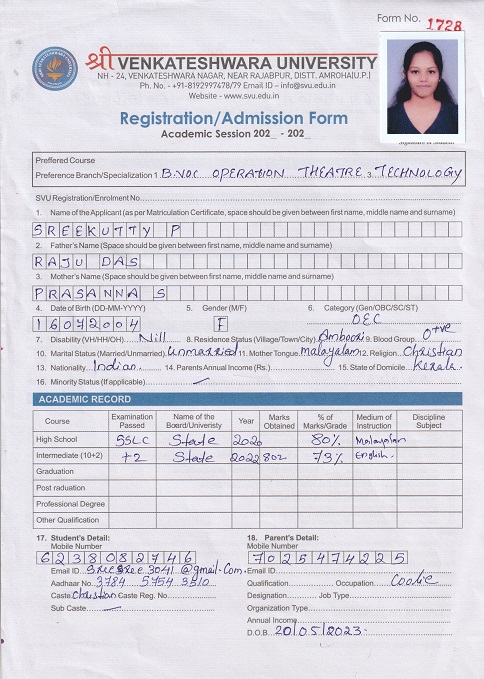 Form No. 1728
श्री VENKATESHWARA UNIVERSITY
NH - 24, VENKATESHWARA NAGAR, NEAR RAJABPUR, DISTT. AMROHA(U.P.)
Ph. No. - +91-8192997478/79 Email ID – info@svu.edu.in
Website - www.svu.edu.in
Registration/Admission Form
Academic Session 202_ - 202_
Preffered Course
Preference Branch/Specialization 1 B.VOC OPERATION THEATRE 3. TECHNOLOGY
SVU Registration/Enrolment No.
1. Name of the Applicant (as per Matriculation Certificate, space should be given between first name, middle name and surname)
SREEKUTTY P
2. Father's Name (Space should be given between first name, middle name and surname)
RAJU DAS
3. Mother's Name (Space should be given between first name, middle name and surname)
PRASANNA S
4. Date of Birth (DD-MM-YYYY) 5. Gender (M/F) 6. Category (Gen/OBC/SC/ST)
16042004 F OEC
7. Disability (VH/HH/OH) Nill 8. Residence Status (Village/Town/City) Amboori 9. Blood Group O+ve
10. Marital Status (Married/Unmarried) Unmarried 11. Mother Tongue malayalam 12. Religion Christian
13. Nationality Indian 14. Parents Annual Income (Rs.) 15. State of Domicile Kerala
16. Minority Status (If applicable)
ACADEMIC RECORD
Course Examination Passed Name of the Board/Univeristy Year Marks Obtained % of Marks/Grade Medium of Instruction Discipline Subject
High School SSLC State 2020 80% Malayalam
Intermediate (10+2) +2 State 2022 802 73% English
Graduation
Post raduation
Professional Degree
Other Qualification
17. Student's Detail: 18. Parent's Detail:
Mobile Number Mobile Number
6238082746 7025474225
Email ID Email ID
Aadhaar No. 3784 5754 3510 Qualification Occupation Coolie
Caste Christian Caste Reg. No. Designation Job Type
Sub Caste Organization Type
Annual Income
D.O.B. 20/05/2023